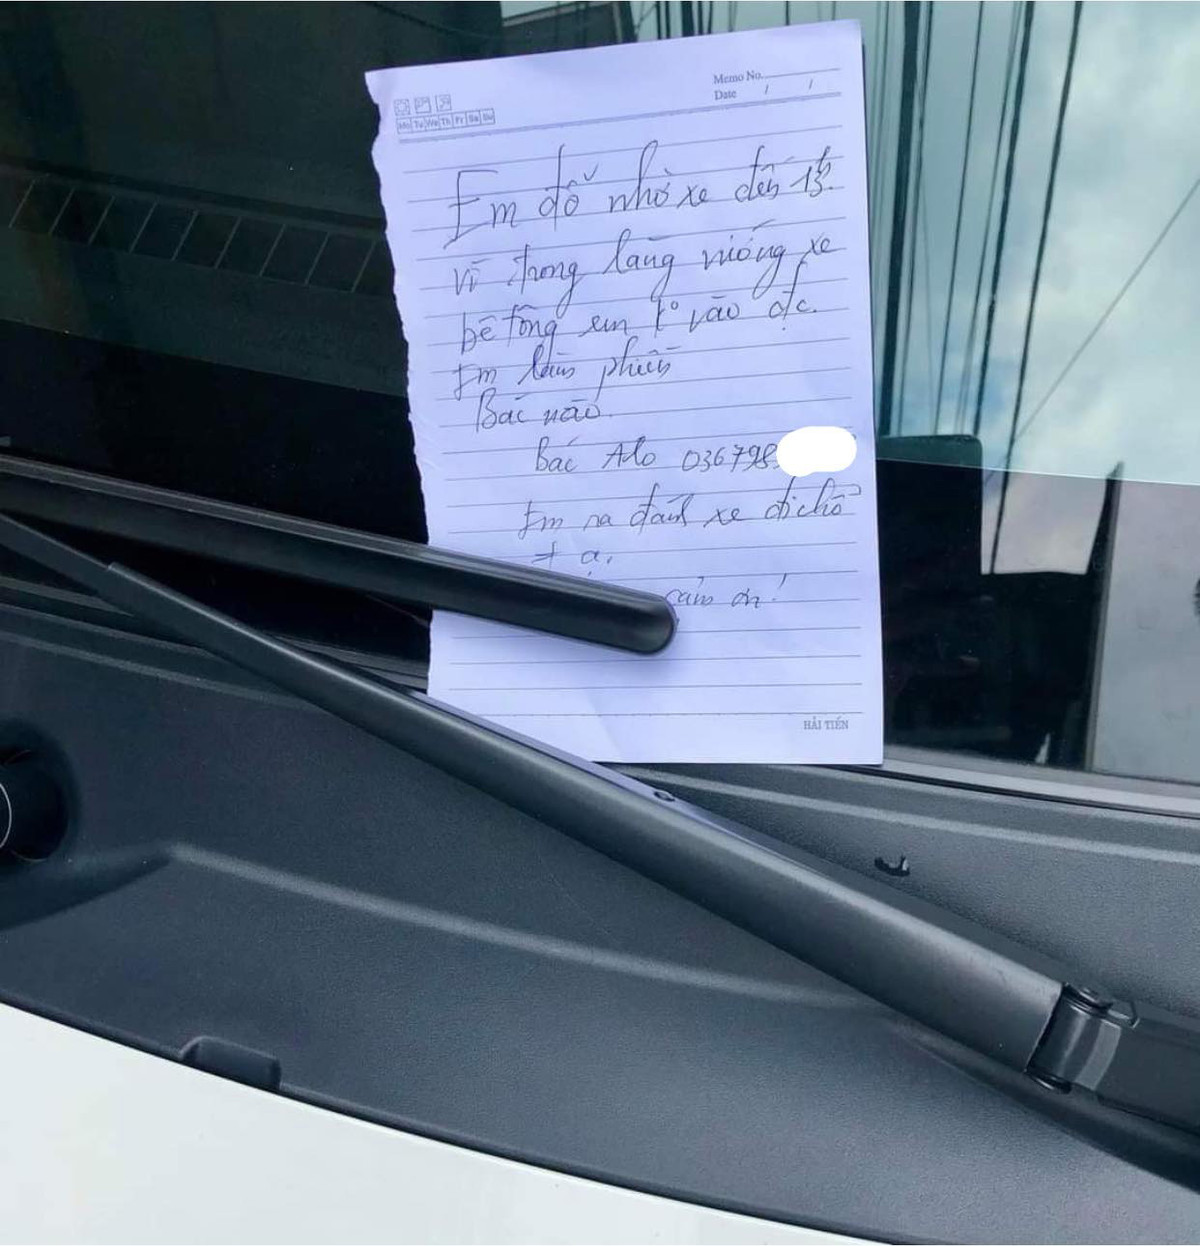 Memo No.
Date / /
Mo Tu We Th Fr Sa Su
Em đỗ nhờ xe đến 13h
vì trong làng vướng xe
bê tông em k° vào đc.
Em làm phiền
Bác nào
Bác Alo 036798
Em ra đánh xe đi chỗ
≠ ạ.
cảm ơn!
HẢI TIẾN